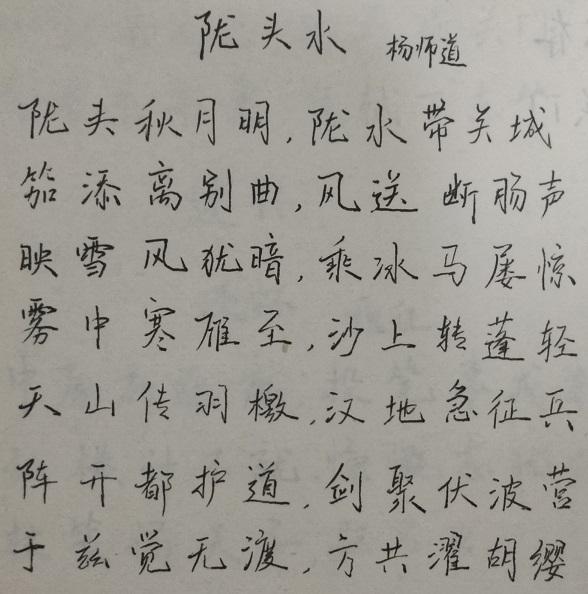 陇头水 杨师道
陇头秋月明,陇水带关城
笳添离别曲,风送断肠声
映雪风犹暗,乘冰马屡惊
雾中寒雁至,沙上转蓬轻
天山传羽檄,汉地急征兵
阵开都护道,剑聚伏波营
于兹觉无渡,方共濯胡缨